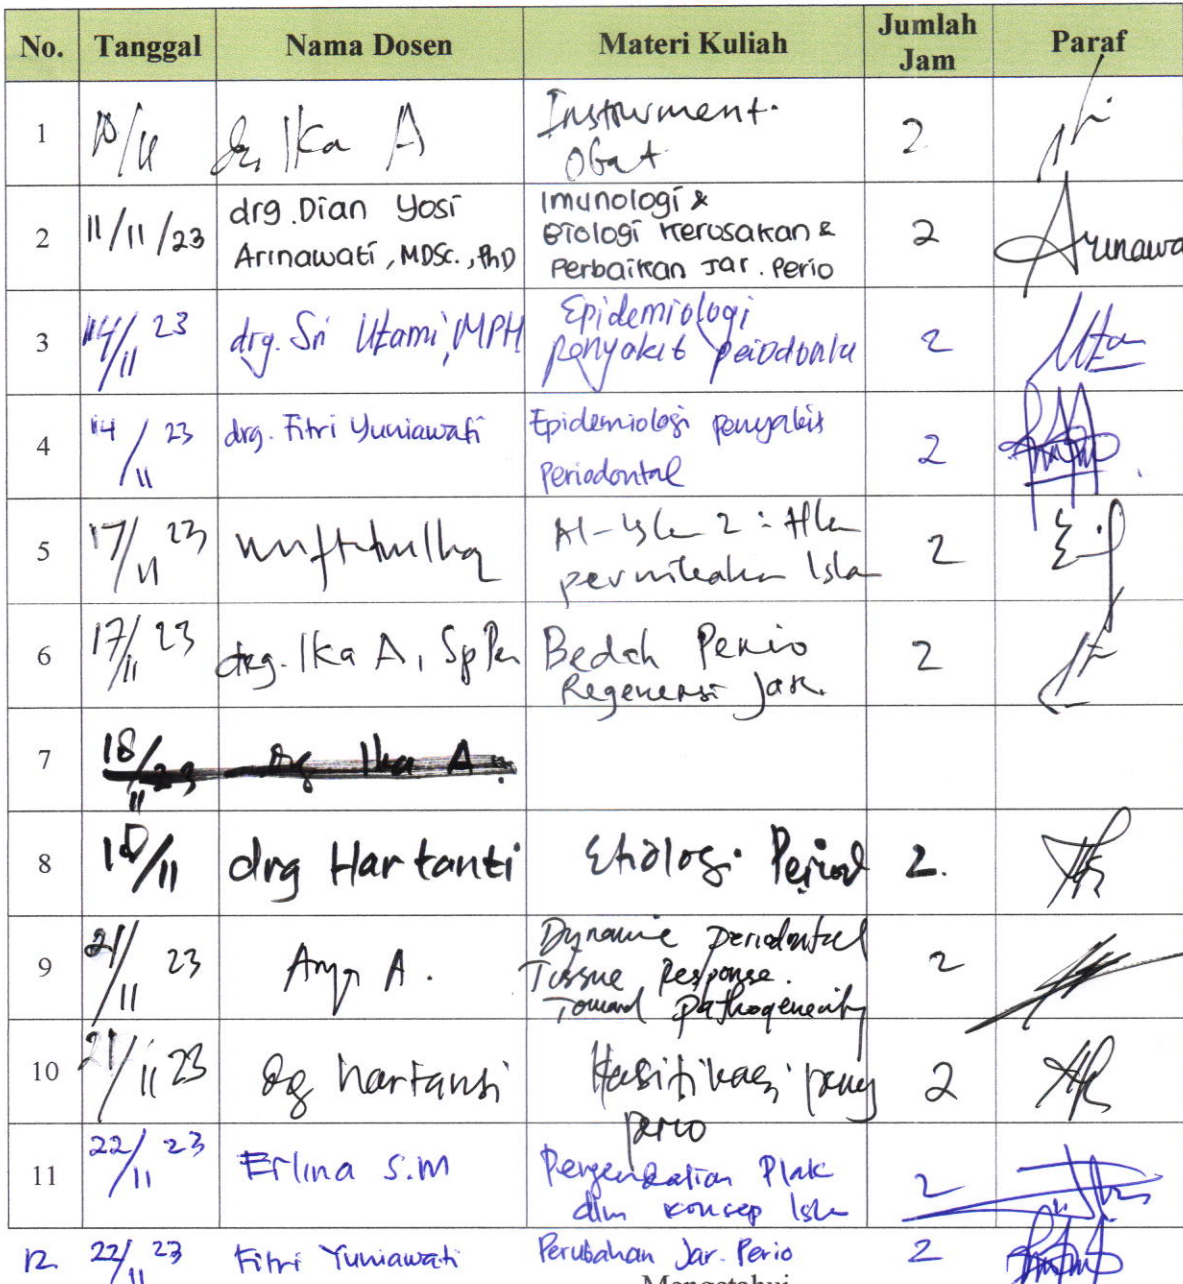 No. Tanggal Nama Dosen Materi Kuliah Jumlah Jam Paraf
1 10/11 drg Ika A Instrument. 2
Obat
2 11/11/23 drg. Dian Yosi Imunologi & 2
Arinawati, MDSc., PhD Biologi Kerusakan &
Perbaikan Jar. Perio
3 14/11 23 drg. Sri Utami, MPH Epidemiologi 2
penyakit periodontal
4 14/11 23 drg. Fitri Yuniawati Epidemiologi penyakit 2
Periodontal
5 17/11 23 Miftahulhaq Al-Isla 2: 2
pernikahan Isla
6 17/11 23 drg. Ika A, Sp Per Bedah Perio 2
Regenerasi Jar.
7 18/11 23 drg Ika A.
8 /11 drg Hartanti Etiologi Period 2.
9 21/11 23 A. Dynamic periodontal 2
Tissue Response.
Toward Pathogenicity
10 21/11 23 drg hartanti Klasifikasi peny 2
perio
11 22/11 23 Erlina S.M Plak 2
dlm konsep Isla
12 22/11 23 Fitri Yuniawati Perubahan Jar. Perio 2
Mengetahui